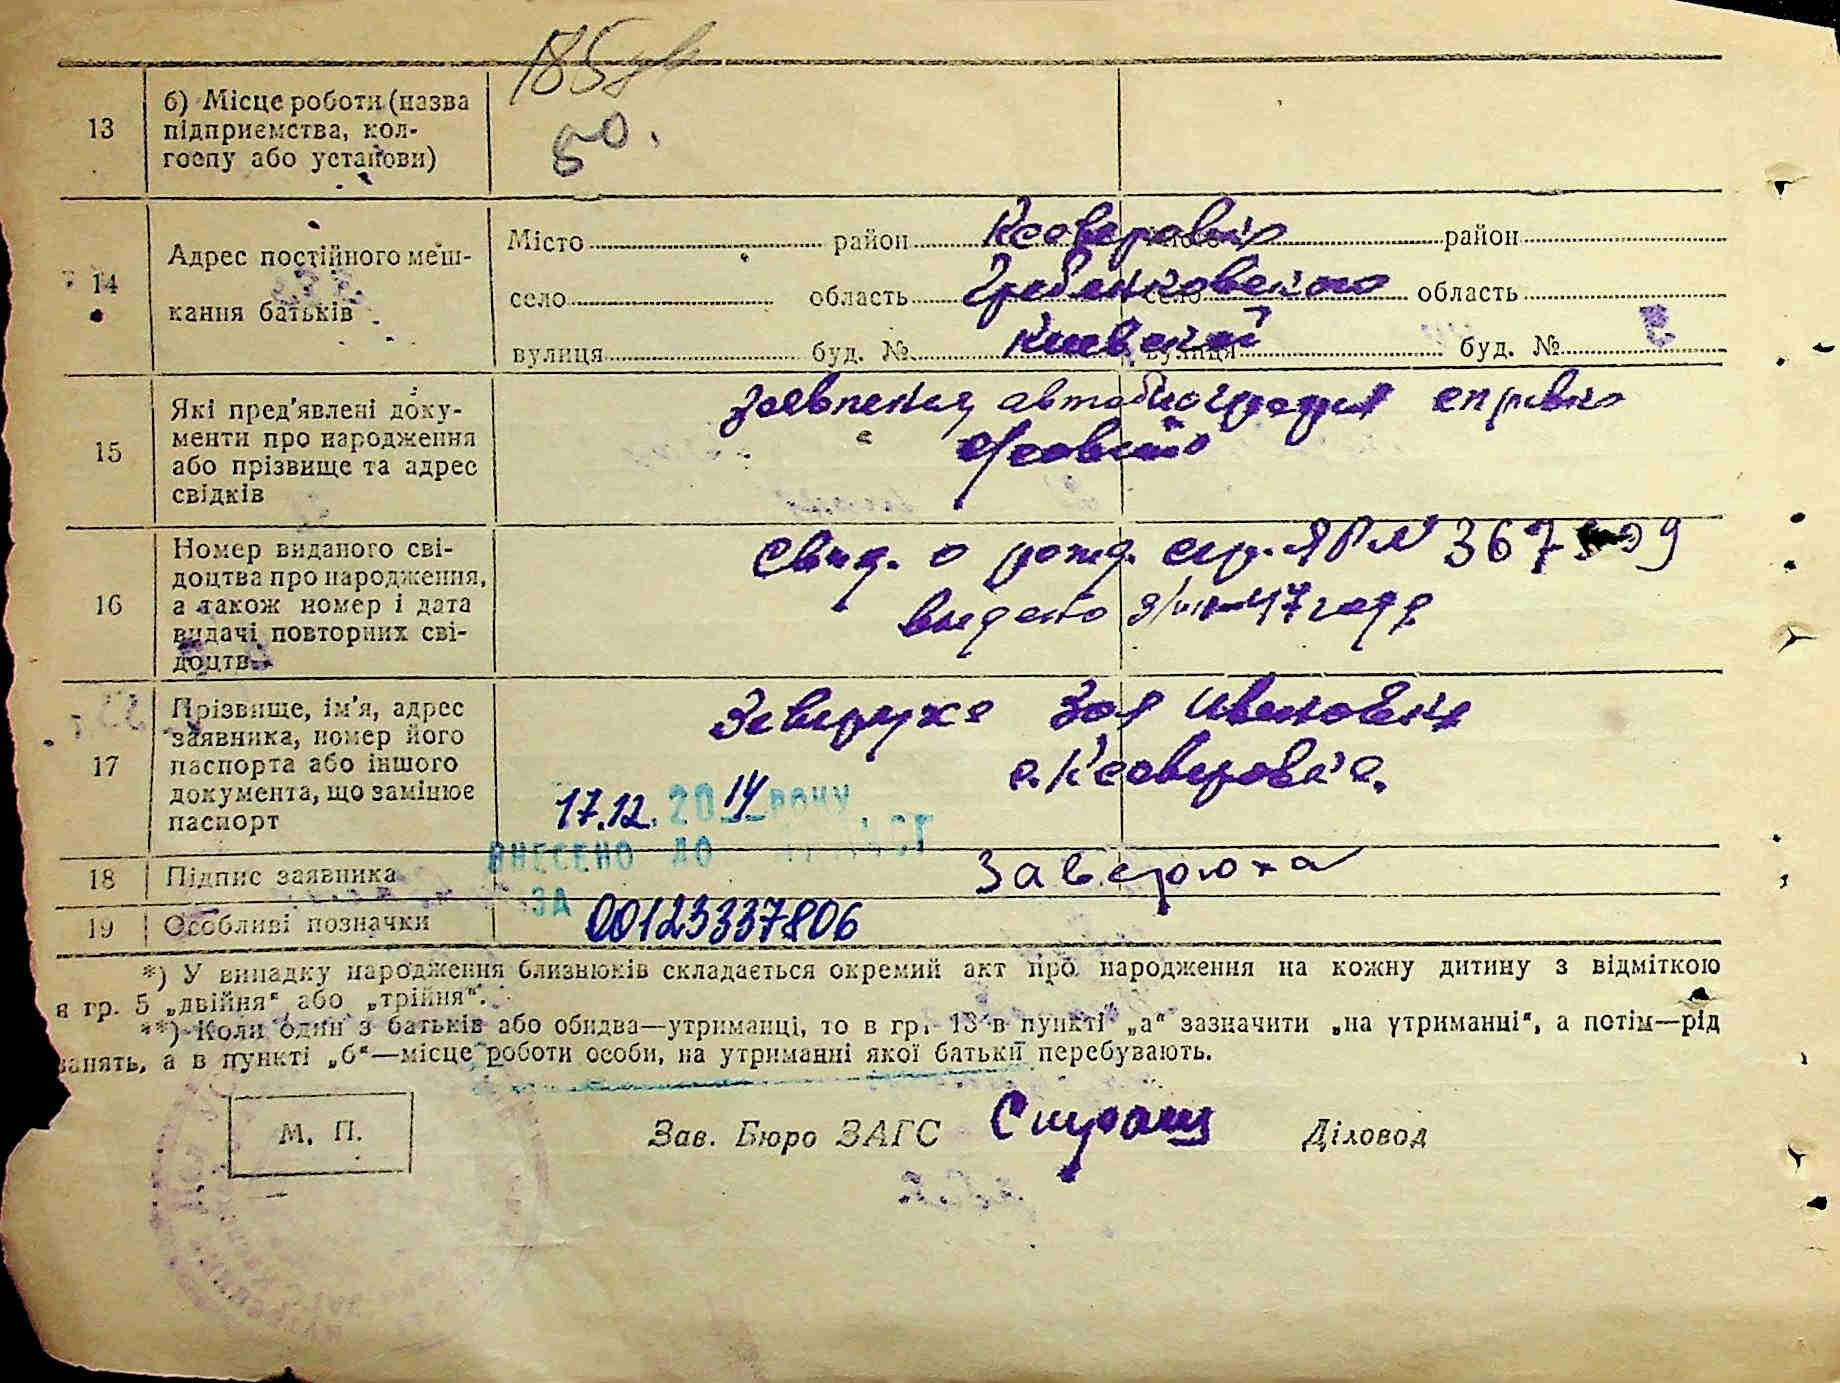 50.
13 б) Місце роботи (назва
підприємства, кол-
госпу або установи)
14 Адрес постійного меш-
кання батьків
Місто район Ксаверовка район
село область Гребенковского село область
вулиця буд. № Киевской вулиця буд. №
15 Які пред'явлені доку-
менти про народження
або прізвище та адрес
свідків
Заявления, автобиография справка
16 Номер виданого сві-
доцтва про народження,
а також номер і дата
видачі повторних сві-
доцтв
Свид. о рожд. сер. ЯР №
выдено 47 года
17 Прізвище, ім'я, адрес
заявника, номер його
паспорта або іншого
документа, що замінює
паспорт
Заверуха Зоя Ивановна
с. Ксаверовка.
17.12. 2014 року
ВНЕСЕНО ДО
18 Підпис заявника Заверюха
ЗА 00123337806
19 Особливі позначки
*) У випадку народження близнюків складається окремий акт про народження на кожну дитину з відміткою
в гр. 5 „двійня“ або „трійня“.
**) Коли один з батьків або обидва—утриманці, то в гр. 13 в пункті „а“ зазначити „на утриманні“, а потім—рід
занять, а в пункті „б“—місце роботи особи, на утриманні якої батьки перебувають.
М. П.
Зав. Бюро ЗАГС Діловод